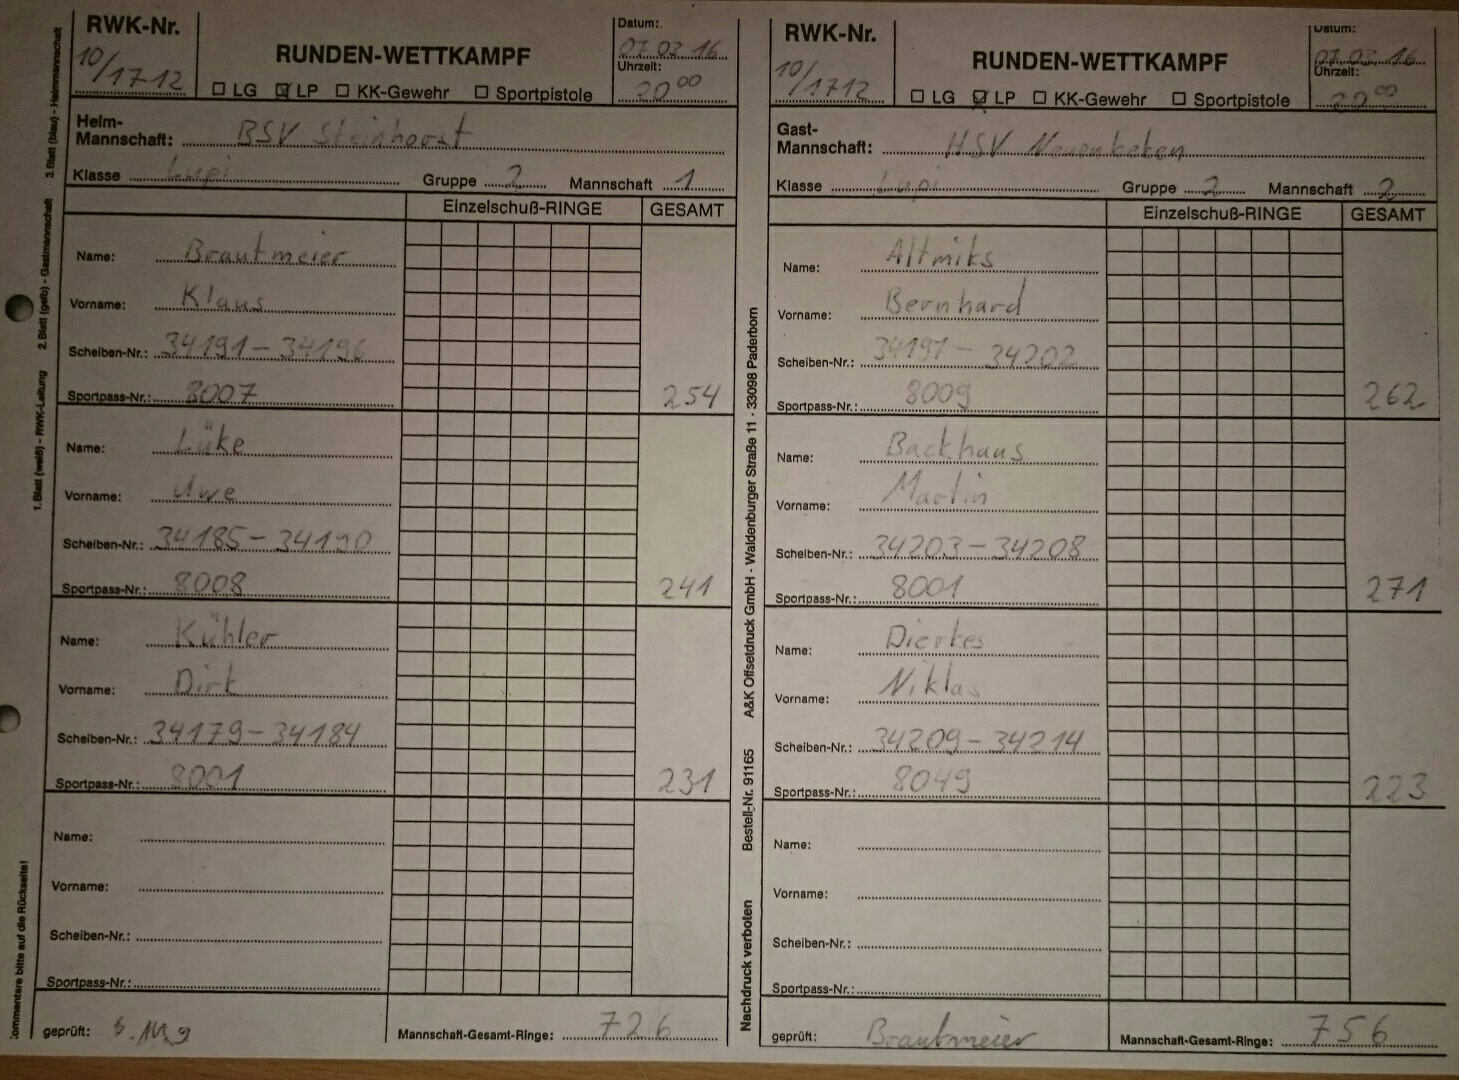 RWK-Nr.
10/1712
RUNDEN-WETTKAMPF
LG LP KK-Gewehr Sportpistole
Datum:
07.03.16
Uhrzeit:
20 00
Heim-
Mannschaft: BSV Steinhorst
Klasse Lupi Gruppe 2 Mannschaft 1
Einzelschuß-RINGE GESAMT
Name: Brautmeier
Vorname: Klaus
Scheiben-Nr.: 34191-34196
Sportpass-Nr.: 8007 254
Name: Lüke
Vorname: Uwe
Scheiben-Nr.: 34185-34190
Sportpass-Nr.: 8008 241
Name: Kühler
Vorname: Dirk
Scheiben-Nr.: 34179-34184
Sportpass-Nr.: 8001 231
Name:
Vorname:
Scheiben-Nr.:
Sportpass-Nr.:
geprüft:
Mannschaft-Gesamt-Ringe: 726
1. Blatt (weiß) - RWK-Leitung 2. Blatt (gelb) - Gastmannschaft 3. Blatt (blau) - Heimmannschaft
ommentare bitte auf die Rückseite!
Nachdruck verboten Bestell-Nr. 91165 A&K Offsetdruck GmbH - Waldenburger Straße 11 - 33098 Paderborn
RWK-Nr.
10/1712
RUNDEN-WETTKAMPF
LG LP KK-Gewehr Sportpistole
Datum:
07.03.16
Uhrzeit:
20 00
Gast-
Mannschaft: HSV Neuenbeken
Klasse Lupi Gruppe 2 Mannschaft 2
Einzelschuß-RINGE GESAMT
Name: Altmiks
Vorname: Bernhard
Scheiben-Nr.: 34197-34202
Sportpass-Nr.: 8009 262
Name: Backhaus
Vorname: Martin
Scheiben-Nr.: 34203-34208
Sportpass-Nr.: 8001 271
Name: Dierkes
Vorname: Niklas
Scheiben-Nr.: 34209-34214
Sportpass-Nr.: 8049 223
Name:
Vorname:
Scheiben-Nr.:
Sportpass-Nr.:
geprüft: Brautmeier
Mannschaft-Gesamt-Ringe: 756